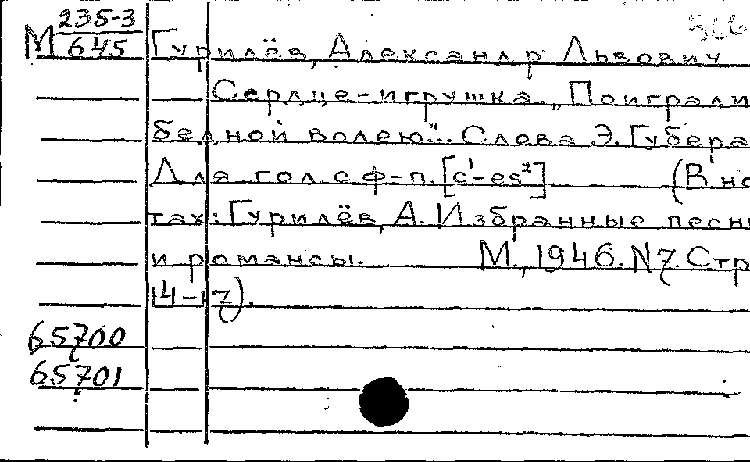 М 235-3
645
Гурилёв, Александр Львович
Сердце-игрушка. „Поиграли
бедной волею"... Слова Э. Губера
Для гол. с ф-п. [c¹-es²] (В но
тах: Гурилёв, А. Избранные песн
и романсы. М., 1946. N7. Стр
14-17).
65700
65701